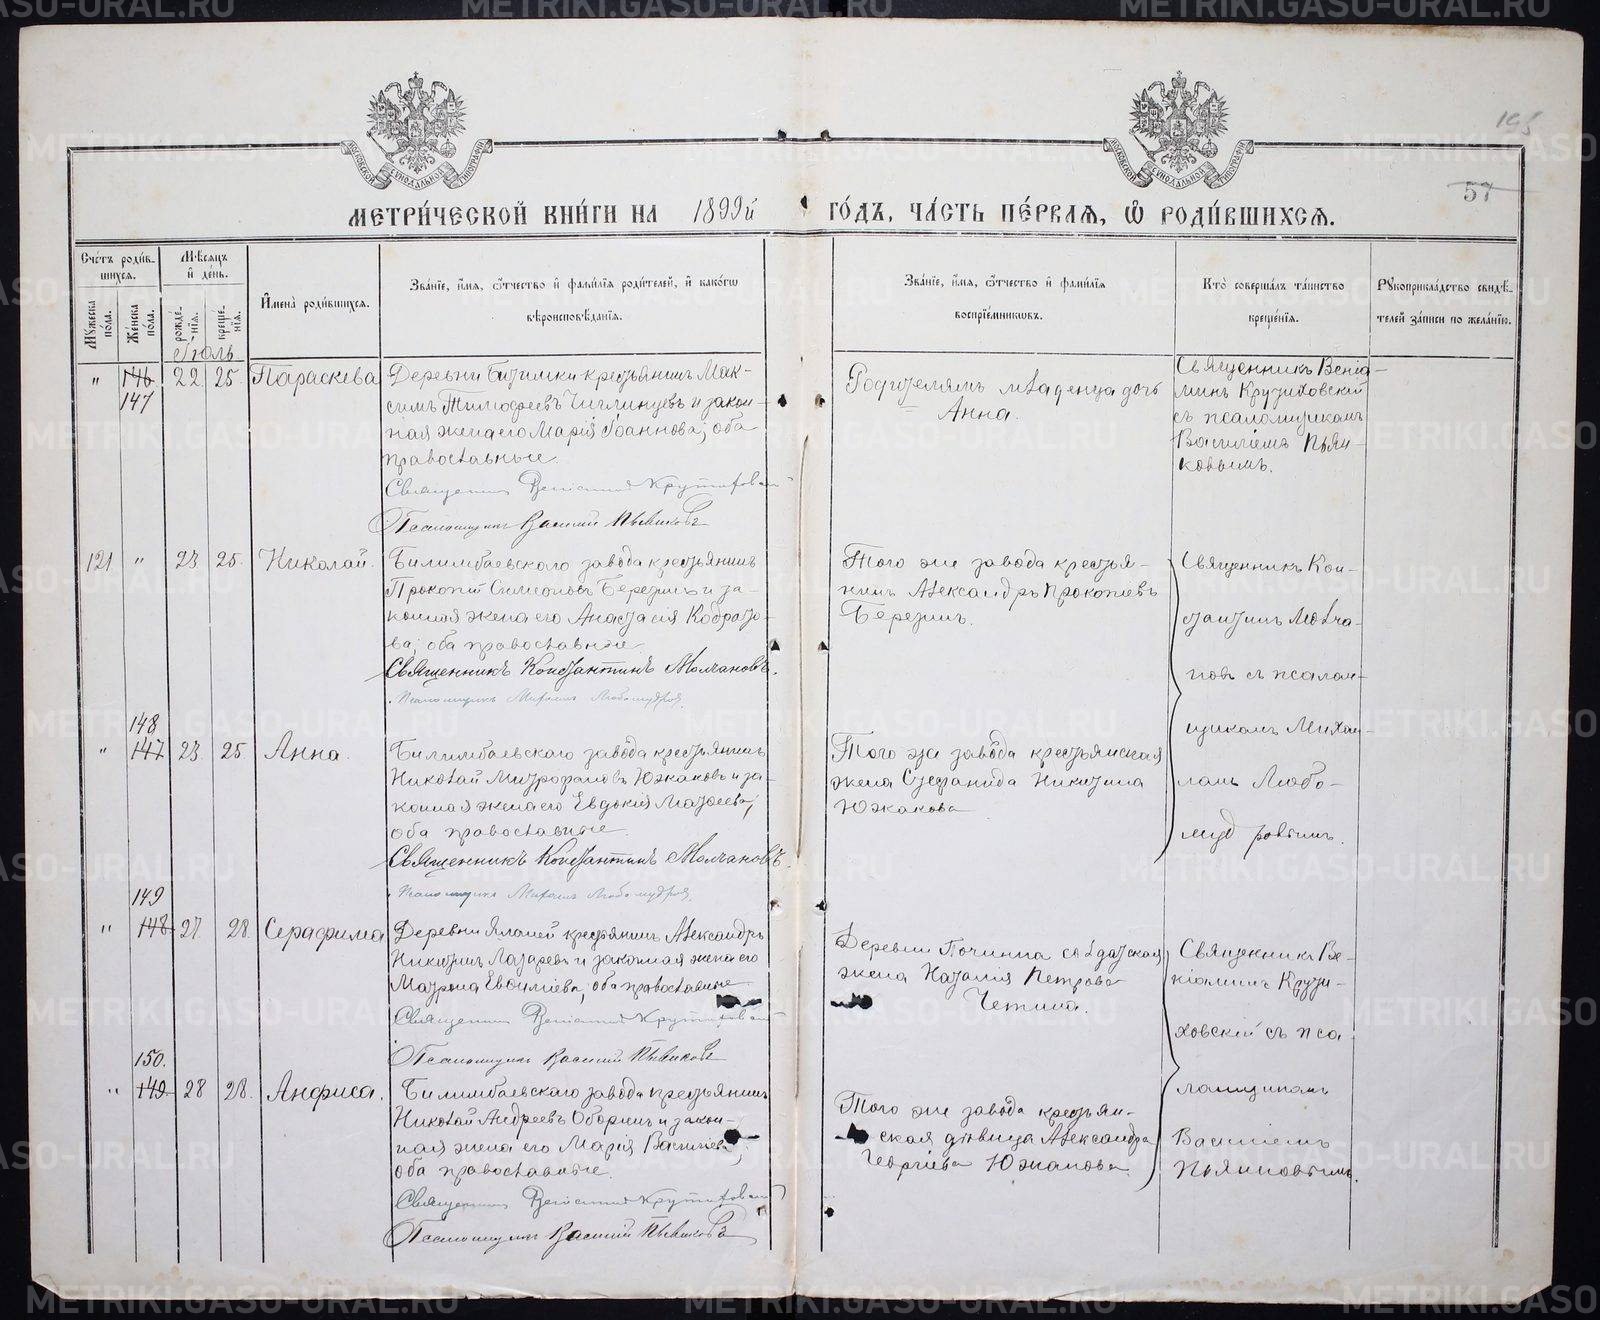 METRIKI.GASO-URAL.RU
195
57
МОСКОВСКОЙ СѴНОДАЛЬНОЙ ТИПОГРАФІИ
МОСКОВСКОЙ СѴНОДАЛЬНОЙ ТИПОГРАФІИ
МЕТРИ́ЧЕСКОЙ КНИ́ГИ НА 1899й ГО́ДЪ, ЧА́СТЬ ПЕ́РВАЯ, Ѽ РОДИ́ВШИХСЯ.
Сче́тъ роди́в-
шихся.
Мꙋ́жеска
по́ла.
Же́нска
по́ла.
Мѣ́сяцъ
и҆ де́нь.
рожде́-
нїя.
креще́-
нїя.
И҆мена̀ роди́вшихся.
Зва́нїе, и҆́мя, ѻ҆́тчество и҆ фами́лїя роди́телей, и҆ како́гѡ
вѣроисповѣ́данїя.
Зва́нїе, и҆́мя, ѻ҆́тчество и҆ фами́лїя
воспрїе́мниковъ.
Кто̀ соверша́лъ та́инство
креще́нїя.
Рꙋкоприкла́дство свидѣ́-
телей за́писи по жела́нїю.
Іюль
" 146 22 25 Параскева
147
Деревни Битимки крестьянинъ Мак-
симъ Тимофеевъ Чиглинцевъ и закон-
ная жена его Марія Іоаннова; оба
православные.
Священникъ Веніаминъ Крутиховскій
Псаломщикъ Василій Пьянковъ
Родителямъ младенца дочь
Анна.
Священникъ Веніа-
минъ Крутиховскій
съ псаломщикомъ
Василіемъ Пьян-
ковымъ.
121 " 23 25 Николай.
Билимбаевскаго завода крестьянинъ
Прокопій Симеоновъ Березинъ и за-
конная жена его Анастасія Кодрато-
ва; оба православные
Священникъ Константинъ Молчановъ.
Псаломщикъ Михаилъ Любомудровъ
Того же завода крестья-
нинъ Александръ Прокопіевъ
Березинъ.
Священникъ Кон-
стантинъ Молча-
новъ съ псалом-
щикомъ Михаи-
ломъ Любо-
мудровымъ.
148
" 147 23 25 Анна.
Билимбаевскаго завода крестьянинъ
Николай Митрофановъ Южаковъ и за-
конная жена его Евдокія Матѳеева;
оба православные
Священникъ Константинъ Молчановъ.
Псаломщикъ Михаилъ Любомудровъ
Того же завода крестьянская
жена Стефанида Никитина
Южакова
149
" 148 27 28 Серафима
Деревни Яланей крестьянинъ Александръ
Никитинъ Лазаревъ и законная жена его
Матрона Евѳиміева; оба православные
Священникъ Веніаминъ Крутиховскій
Псаломщикъ Василій Пьянковъ
Деревни Починка солдатская
жена Наталія Петрова
Четина.
Священникъ Ве-
ніаминъ Крути-
ховскій съ пса-
ломщикомъ
Василіемъ
Пьянковымъ.
150.
" 149 28 28 Анфиса.
Билимбаевскаго завода крестьянинъ
Николай Андреевъ Оборинъ и закон-
ная жена его Марія Васильева;
оба православные.
Священникъ Веніаминъ Крутиховскій
Псаломщикъ Василій Пьянковъ
Того же завода крестьян-
ская дѣвица Александра
Георгіева Южакова